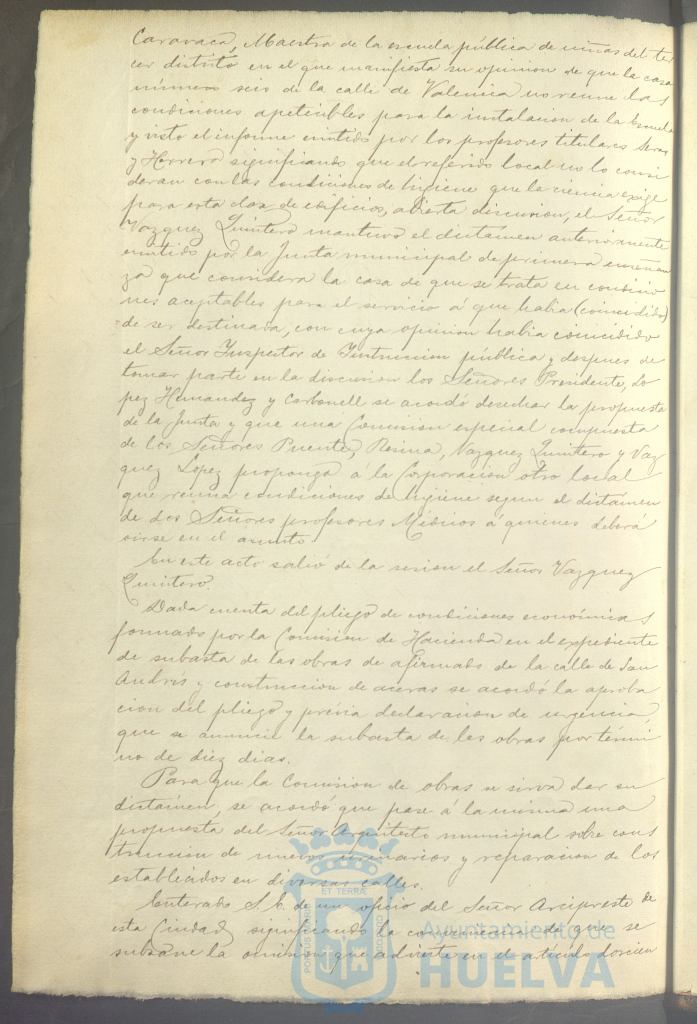 Caravaca, Maestra de la escuela pública de niñas del ter
cer distrito en el que manifiesta su opinion de que la casa
número seis de la calle de Valencia no reune las
condiciones apetecibles para la instalacion de la Escuela
y visto el informe emitido por los profesores titulares
y Herrero significando que el referido local no lo consi
deran con las condiciones de higiene que la ciencia exige
para esta clase de edificios, abierta discusion, el Señor
Vazquez Quintero mantuvo el dictámen anteriormente
emitido por la Junta municipal de primera enseñan
za que considera la casa de que se trata en condicio
nes aceptables para el servicio á que habia (coincidido)
de ser destinada, con cuya opinion habia coincidido
el Señor Inspector de Instruccion pública y despues de
tomar parte en la discusion los Señores Presidente, Lo
pez Hernandez y Carbonell se acordó desechar la propuesta
de la Junta y que una Comision especial compuesta
de los Señores Puente, Resina, Vazquez Quintero y Vaz
quez Lopez proponga á la Corporacion otro local
que reuna condiciones de higiene segun el dictámen
de dos Señores profesores Médicos á quienes deberá
oirse en el asunto.
En este acto salió de la sesion el Señor Vazquez
Quintero.
Dada cuenta del pliego de condiciones económicas
formado por la Comision de Hacienda en el expediente
de subasta de las obras de afirmado de la calle de San
Andrés y construccion de aceras se acordó la aproba
cion del pliego y prévia declaracion de urgencia,
que se anuncie la subasta de las obras por térmi
no de diez dias.
Para que la Comision de obras se sirva dar su
dictámen, se acordó que pase á la misma una
propuesta del Señor Arquitecto municipal sobre cons
truccion de nuevos urinarios y reparacion de los
establecidos en diversas calles.
Enterado S. E. de un oficio del Señor Arcipreste de
esta Ciudad significando la conveniencia de que se
subsane la omision que advierte en el artículo doscien
PORTUS MARIS ET TERRÆ CUSTODIA
Ayuntamiento de
HUELVA